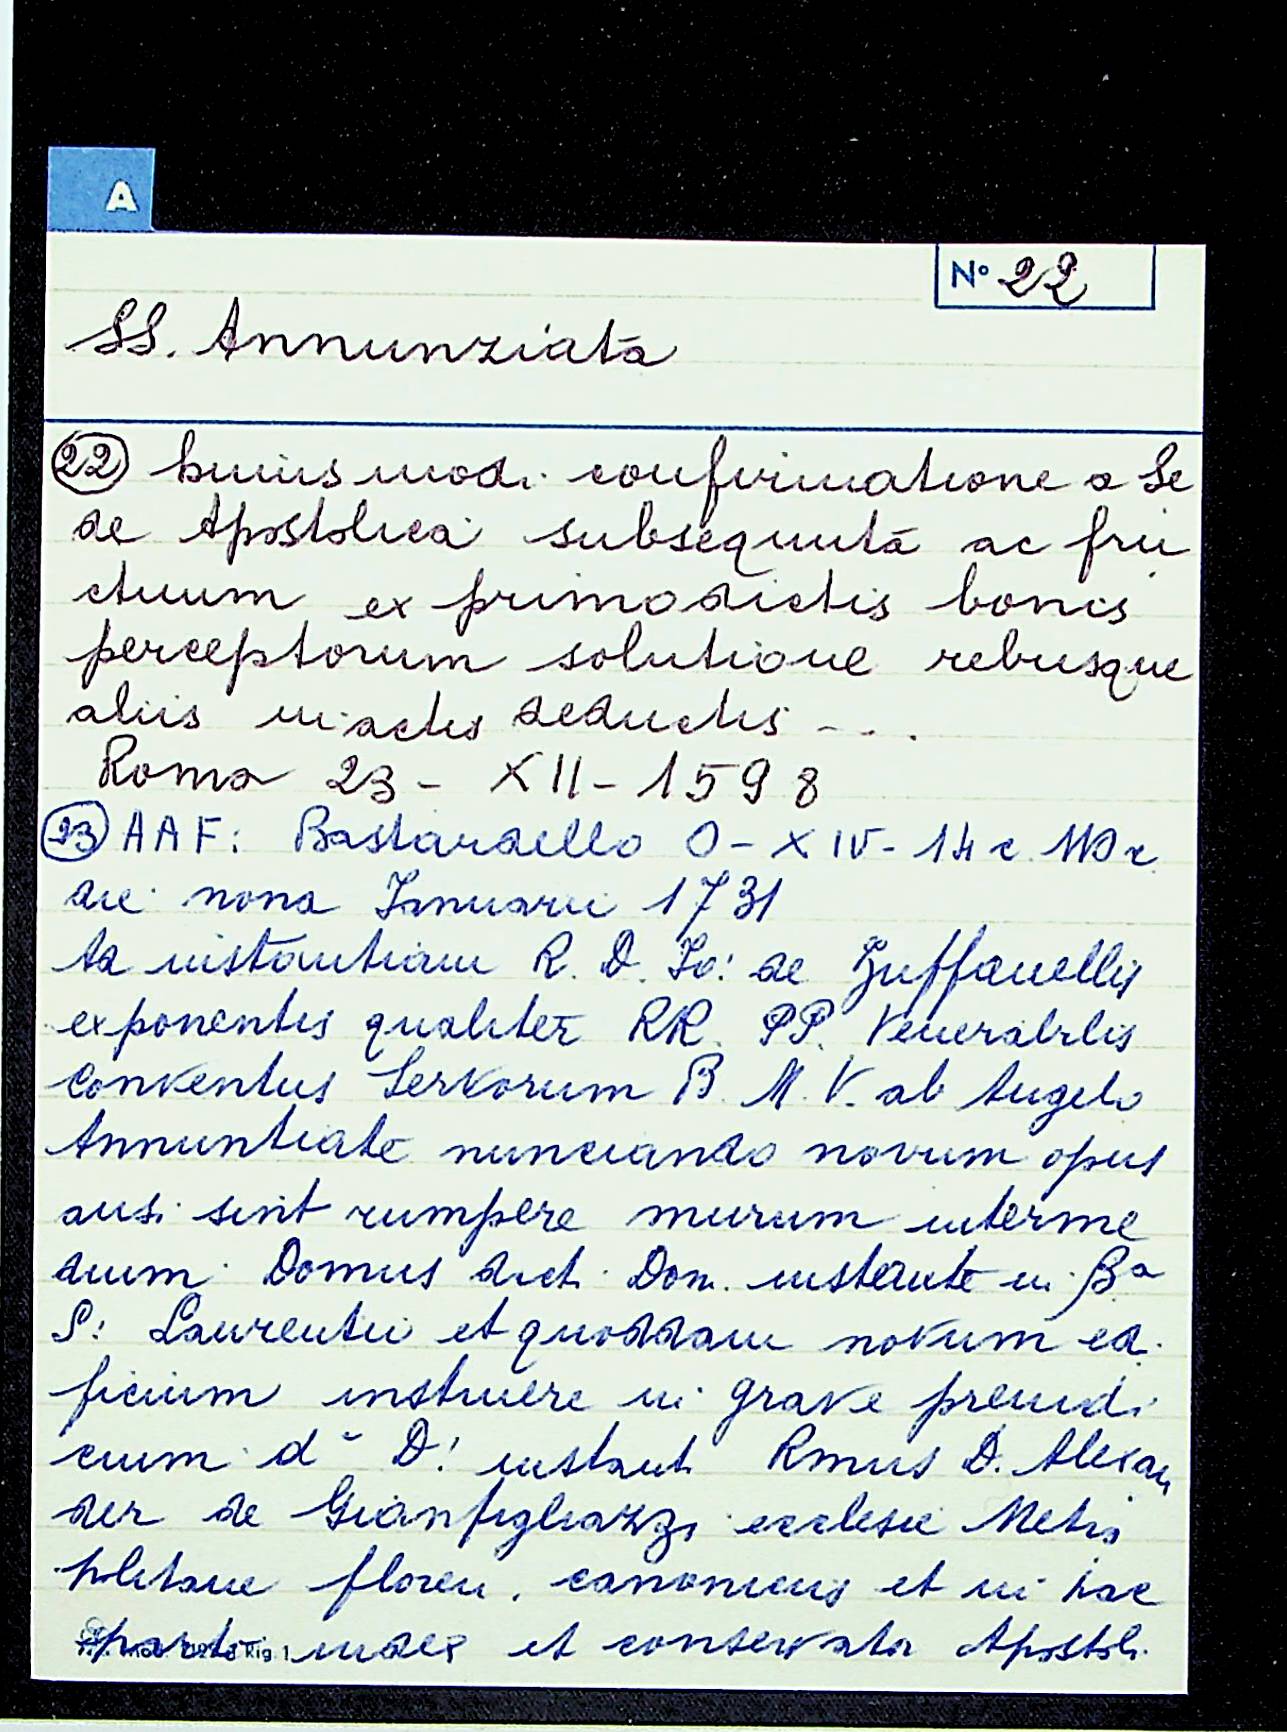 A
N° 22
SS. Annunziata
22 huiusmodi confirmatione a Se
de Apostolica subsequuta ac fru
ctuum ex primodictis bonis
perceptorum solutione rebusque
aliis in actis deductis - . . .
Roma 23 - XII - 1598
23 AAF: Bastardello O - XIV - 14 c. 110 r
die nona Ianuarii 1731
Ad instantiam R. D. Io: de Zuffanellis
exponentis qualiter RR. PP. Venerabilis
Conventus Servorum B. M. V. ab Angelo
Annuntiate nunciando novum opus
ausi sint rumpere murum interme
dium Domus dicti Don. instante in Ba
S: Laurentii et quoddam novum edi
ficium instruere in grave preiudi
cium d D! instant Rmus D. Alexan
der de Gianfigliazzi ecclesie Metro
politane floren. canonicus et in hac
parte iudex et conservator Apostoli